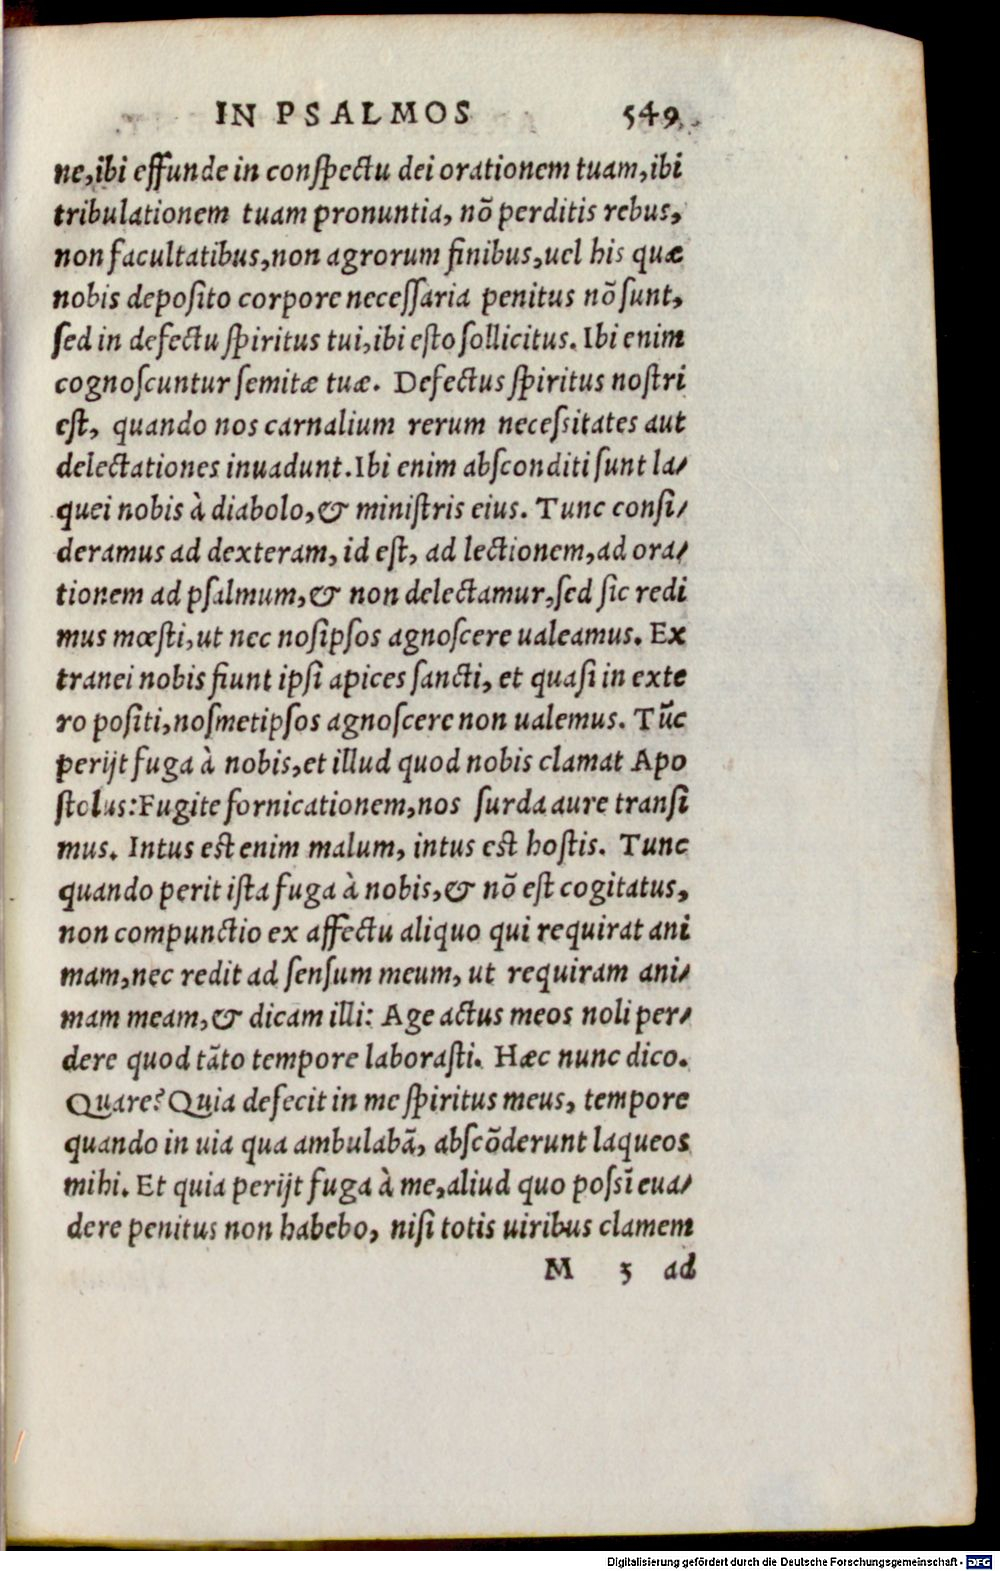 IN PSALMOS 549
ne, ibi effunde in conſpectu dei orationem tuam, ibi
tribulationem tuam pronuntia, nõ perditis rebus,
non facultatibus, non agrorum finibus, uel his quæ
nobis depoſito corpore neceſſaria penitus nõ ſunt,
ſed in defectu ſpiritus tui, ibi eſto ſollicitus. Ibi enim
cognoſcuntur ſemitæ tuæ. Defectus ſpiritus noſtri
eſt, quando nos carnalium rerum neceſsitates aut
delectationes inuadunt. Ibi enim abſconditi ſunt la/
quei nobis à diabolo, & miniſtris eius. Tunc conſi/
deramus ad dexteram, id eſt, ad lectionem, ad ora/
tionem ad pſalmum, & non delectamur, ſed ſic redi
mus mœſti, ut nec noſipſos agnoſcere ualeamus. Ex
tranei nobis fiunt ipſi apices ſancti, et quaſi in exte
ro poſiti, noſmetipſos agnoſcere non ualemus. Tũc
perijt fuga à nobis, et illud quod nobis clamat Apo
ſtolus: Fugite fornicationem, nos ſurda aure tranſi
mus. Intus est enim malum, intus est hoſtis. Tunc
quando perit iſta fuga à nobis, & nõ eſt cogitatus,
non compunctio ex affectu aliquo qui requirat ani
mam, nec redit ad ſenſum meum, ut requiram ani/
mam meam, & dicam illi: Age actus meos noli per/
dere quod tãto tempore laboraſti. Hæc nunc dico.
Quare? Quia defecit in me ſpiritus meus, tempore
quando in uia qua ambulabã, abſcõderunt laqueos
mihi. Et quia perijt fuga à me, aliud quo poſsĩ eua/
dere penitus non habebo, niſi totis uiribus clamem
M 3 ad
Digitalisierung gefördert durch die Deutsche Forschungsgemeinschaft - DFG